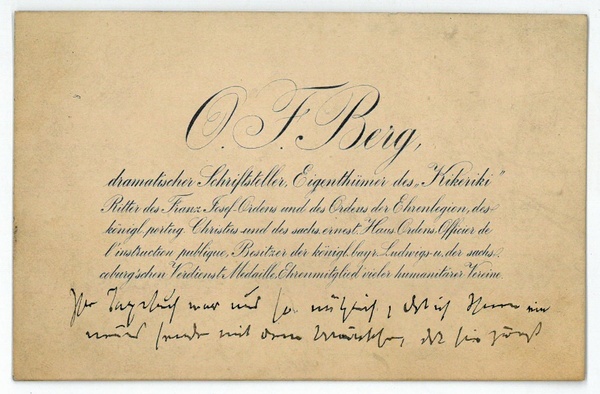 O. F. Berg,
dramatischer Schriftsteller, Eigenthümer des „Kikeriki“
Ritter des Franz Josef-Ordens und des Ordens der Ehrenlegion, des
königl. portug. Christus und des sachs. ernest. Haus Ordens, Officier de
l'instruction publique, Besitzer der königl. bayr. Ludwigs- u. der sachs.
coburg'schen Verdienst-Medaille, Ehrenmitglied vieler humanitärer Vereine
Ihr Tagebuch war mir so nützlich, daß ich Ihnen ein
mit dem